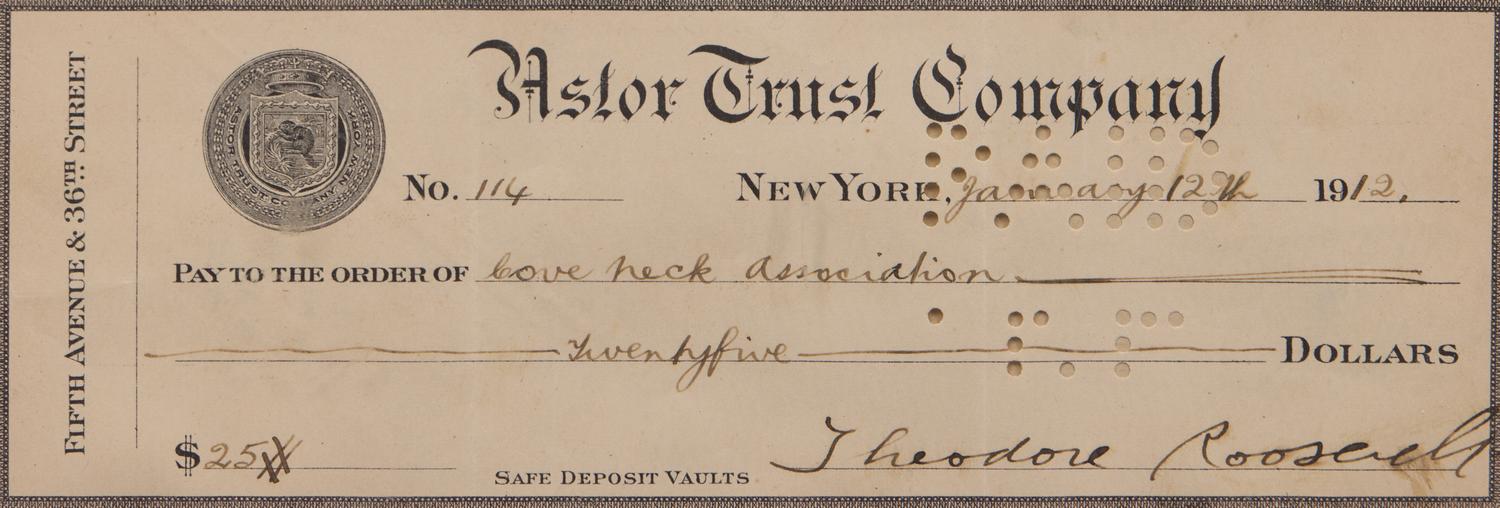 Astor Trust Company
ASTOR TRUST COMPANY NEW YORK
FIFTH AVENUE & 36TH STREET
No. 114 NEW YORK, January 12th 1912.
PAY TO THE ORDER OF Cove Neck Association
Twentyfive DOLLARS
$25
SAFE DEPOSIT VAULTS
Theodore Roosevelt